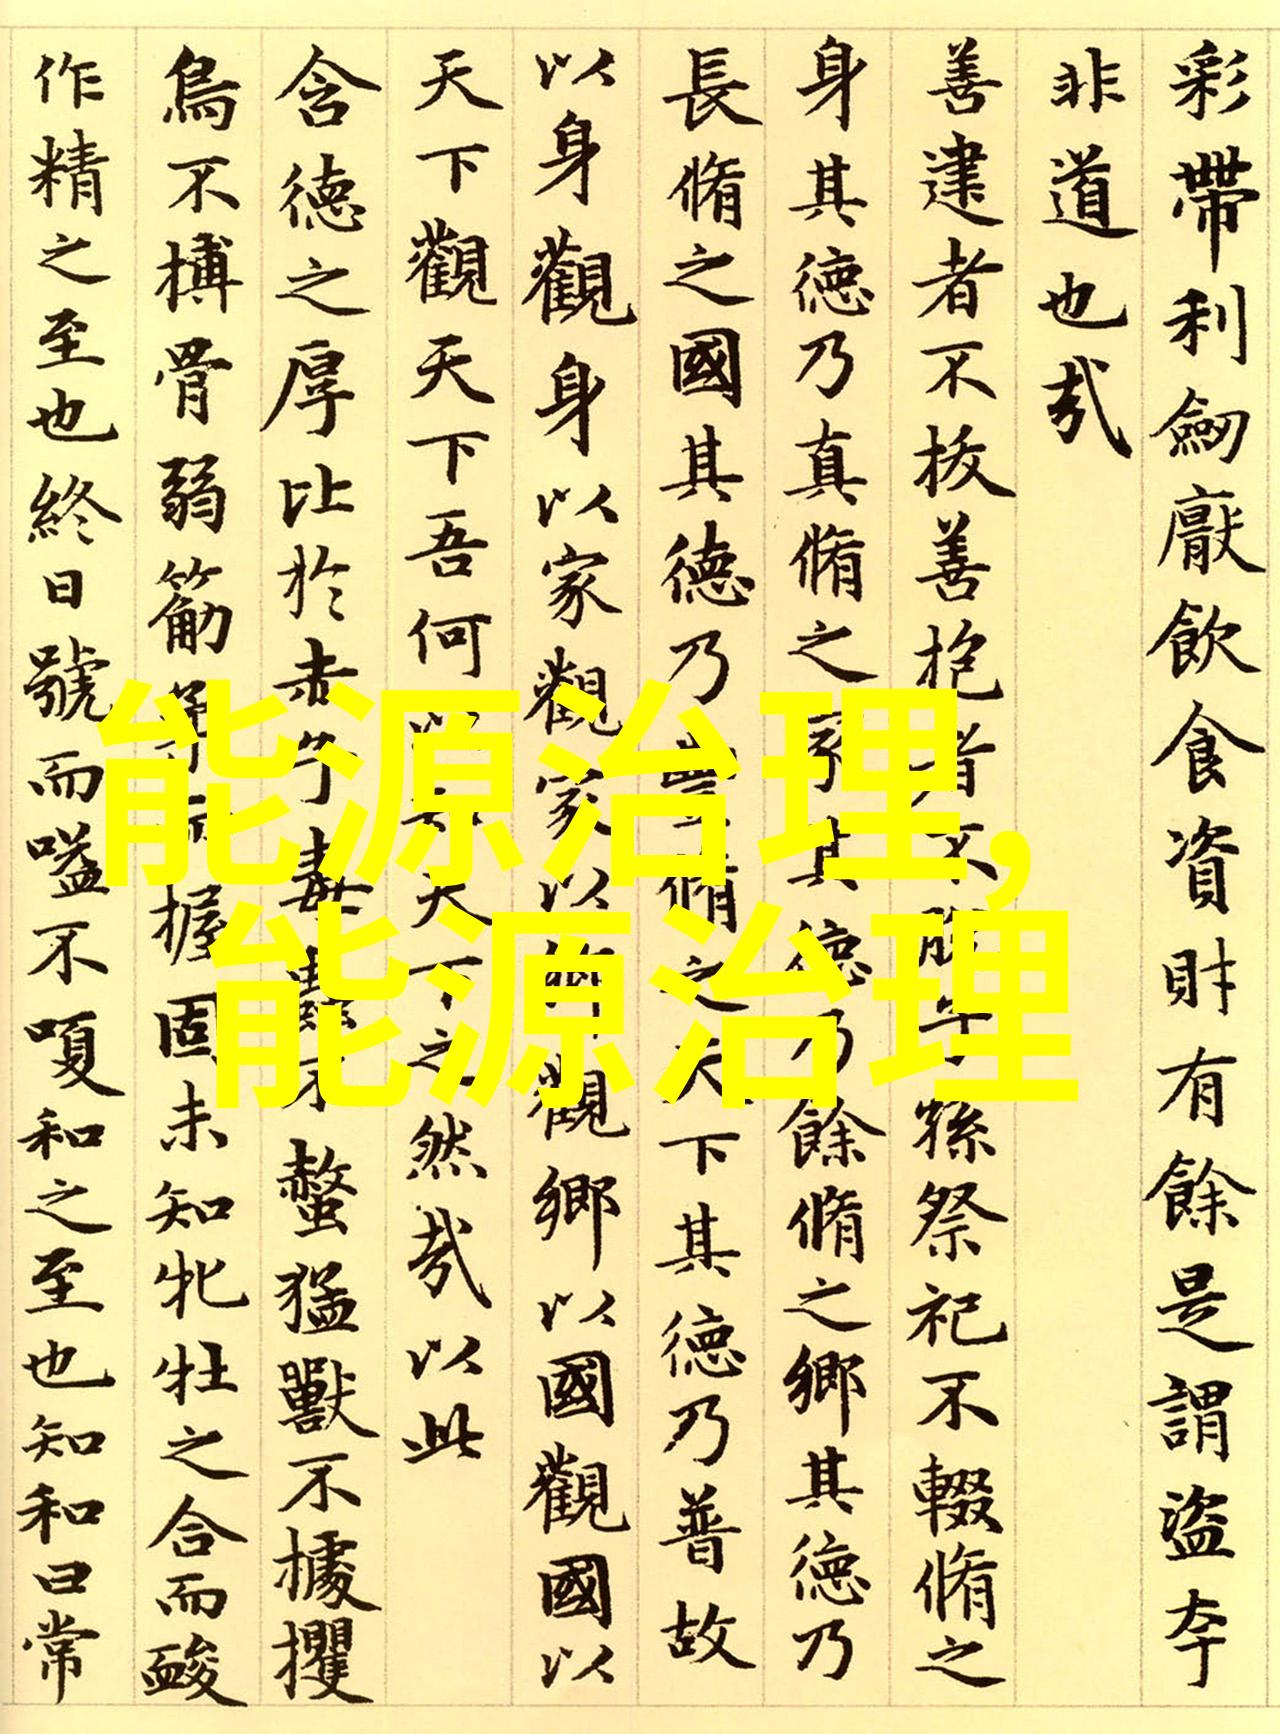 彩帶利劒厭飲食資財有餘是謂盜夸
非道也哉
善建者不拔善抱者不脫子孫祭祀不輟脩之
身其德乃真脩之家其德乃餘脩之鄉其德乃
長脩之國其德乃豐脩之天下其德乃普故
以身觀身以家觀家以鄉觀鄉以國觀國以
天下觀天下吾何以知天下之然哉以此
含德之厚比於赤子毒蟲不螫猛獸不據攫
鳥不搏骨弱筋柔而握固未知牝牡之合而酸
作精之至也終日號而嗌不嗄和之至也知和曰常
能源治理,
能源治理